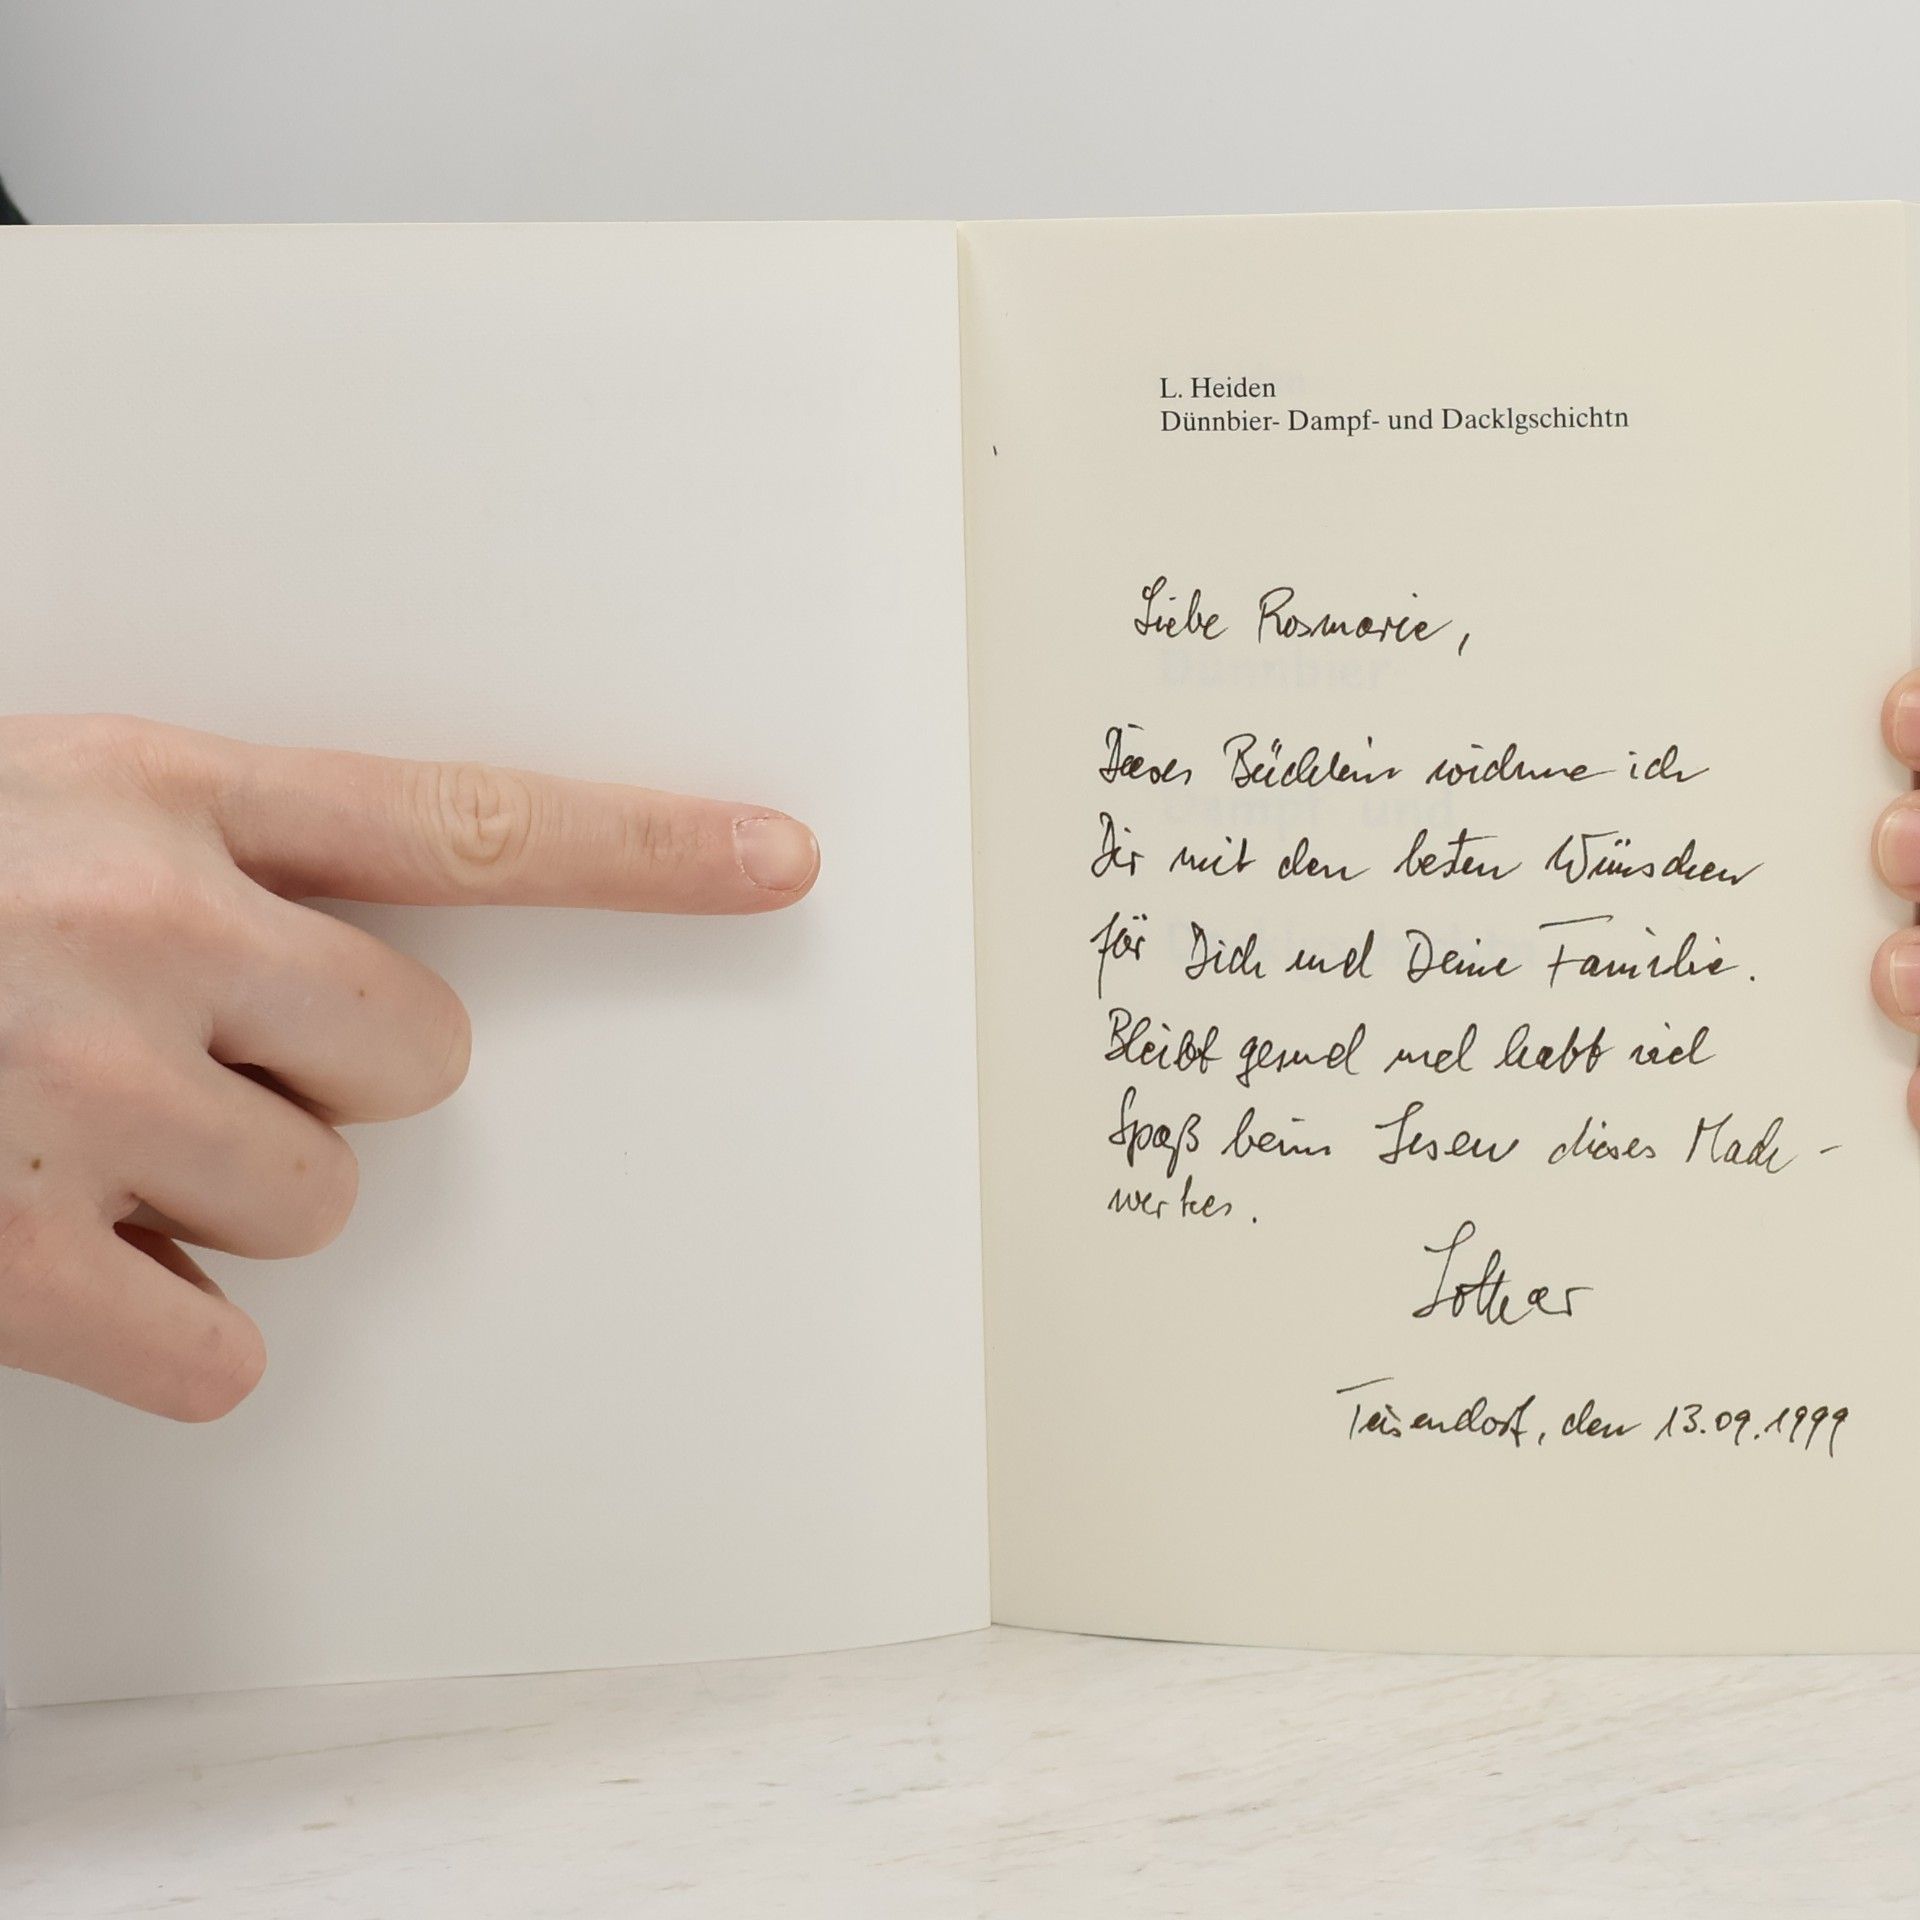 L. Heiden
Dünnbier- Dampf- und Dacklgschichtn
Liebe Rosmarie,
Dieses Büchlein widme ich
Dir mit den besten Wünschen
für Dich und Deine Familie.
Bleibt gesund und habt viel
Spaß beim Lesen dieses Mach-
werkes.
Lothar
Teisendorf, den 13.09.1999